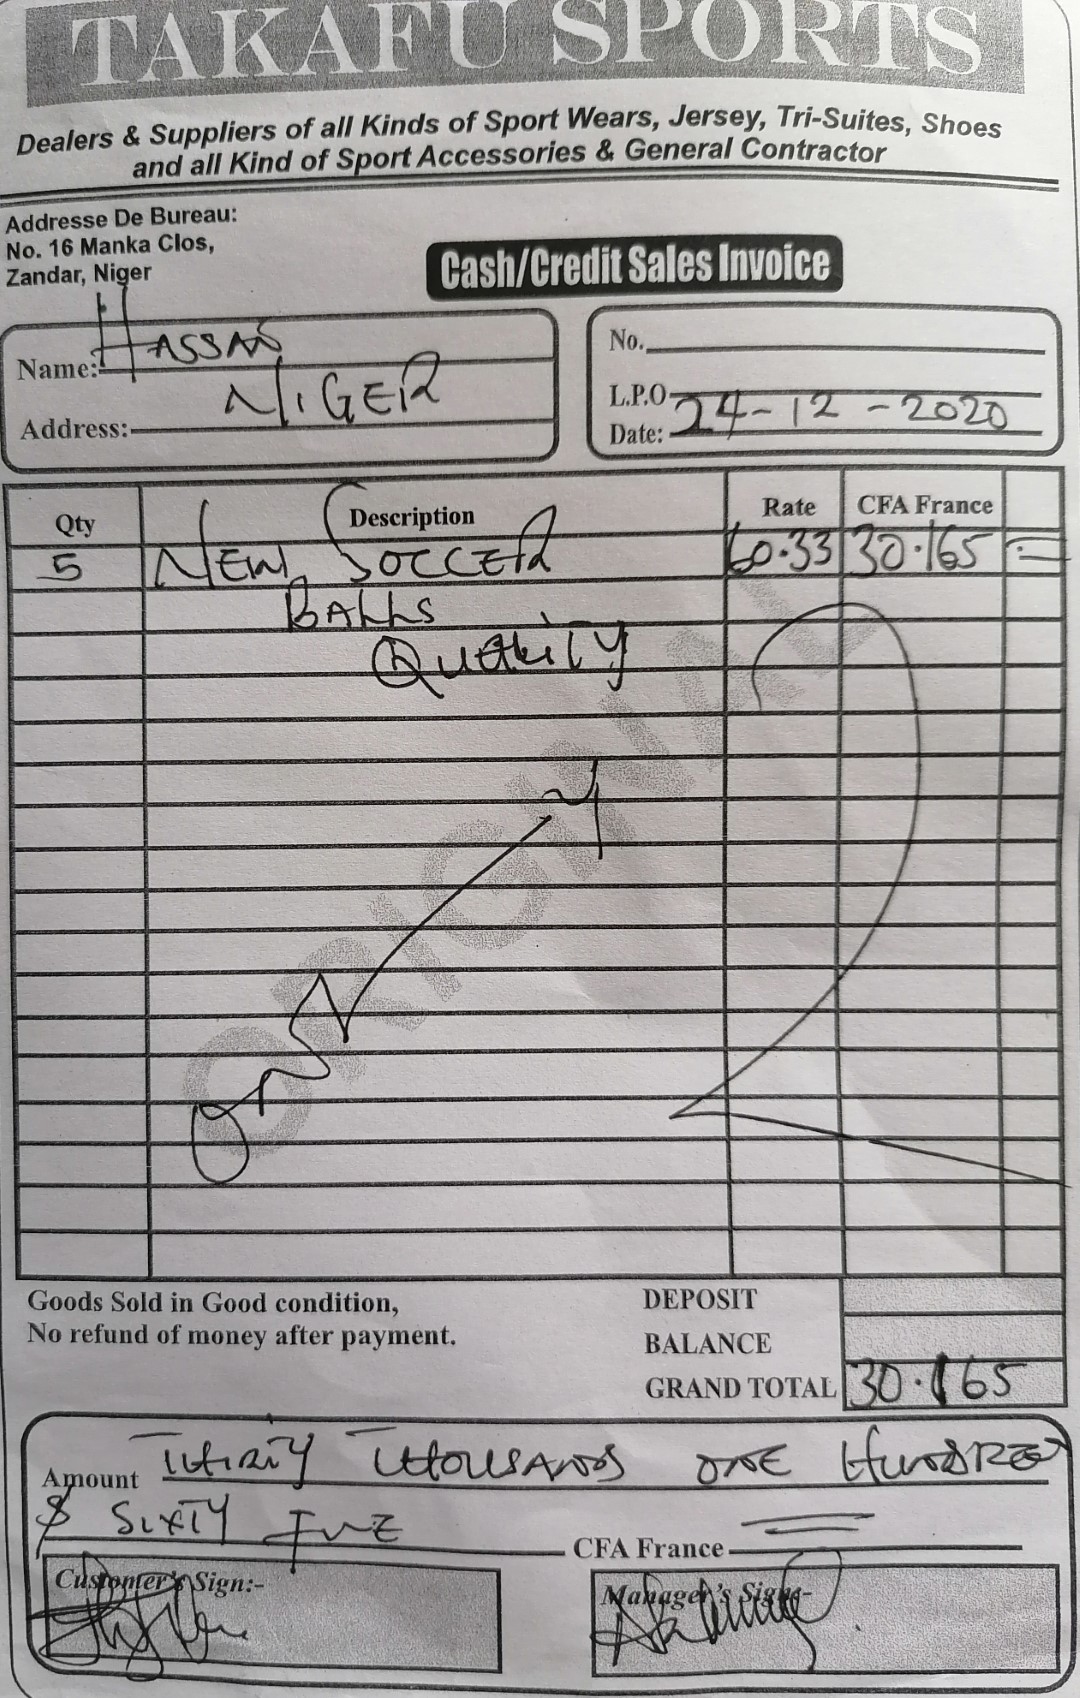 TAKAFU SPORTS
Dealers & Suppliers of all Kinds of Sport Wears, Jersey, Tri-Suites, Shoes
and all Kind of Sport Accessories & General Contractor
Addresse De Bureau:
No. 16 Manka Clos,
Zandar, Niger
Cash/Credit Sales Invoice
Name: HASSAN
Address: NIGER
No.
L.P.O
Date: 24-12-2020
Qty Description Rate CFA France
5 NEW SOCCER 60.33 30.165 =
BALLS
ORIGINAL
ONLY
Goods Sold in Good condition,
No refund of money after payment.
DEPOSIT
BALANCE
GRAND TOTAL 30.165
Amount THIRTY THOUSANDS ONE HUNDRED
& SIXTY FIVE CFA France
Customer's Sign:-
Manager's Sign:-